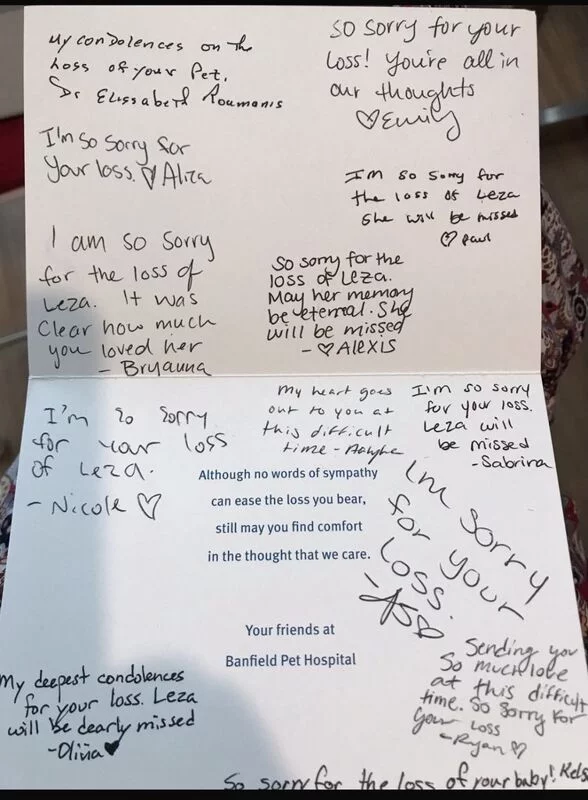 My condolences on the
loss of your Pet.
Dr Elissabeth Roumanis
So sorry for your
loss! You're all in
our thoughts
♡Emily
I'm so sorry for
your loss. ♡ Aliza
I'm so sorry for
the loss of Leza
She will be missed
♡ Paul
I am so sorry
for the loss of
Leza. It was
Clear how much
you loved her
- Bryanna
So sorry for the
loss of Leza.
May her memory
be eternal. She
will be missed
- ♡ALEXIS
My heart goes
out to you at
this difficult
time -
I'm so sorry
for your loss.
Leza will
be missed
-Sabrina
I'm so sorry
for your loss
of Leza.
- Nicole ♡
Although no words of sympathy
can ease the loss you bear,
still may you find comfort
in the thought that we care.
I'm sorry
for your
loss.
Your friends at
Banfield Pet Hospital
Sending you
So much love
at this difficult
time. So sorry for
your loss
-Ryan ♡
My deepest condolences
for your loss. Leza
will be dearly missed
-Olivia♥
So sorry for the loss of your baby! Kels